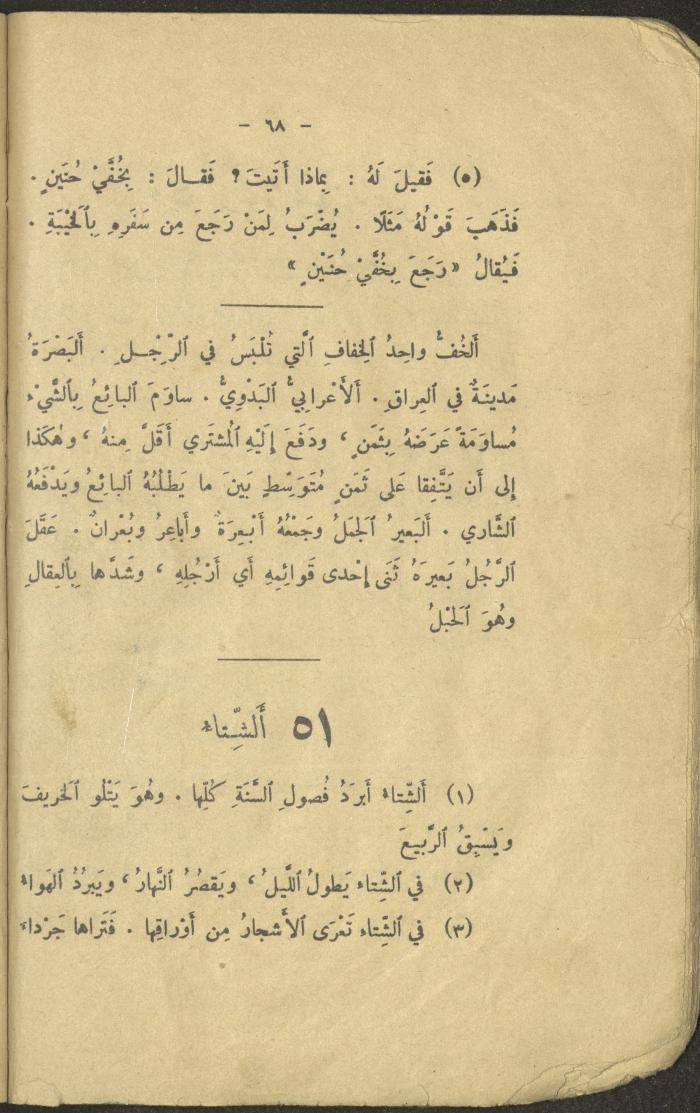 - ٦٨ -
(٥) فَقيلَ لَهُ : بِماذا أَتَيتَ ؟ فَقـالَ : بِخُفَّيْ حُنَينٍ .
فَذَهَبَ قَوْلُهُ مَثَلًا . يُضْرَبُ لِمَنْ رَجَعَ مِن سَفَرِهِ بِٱلْخَيْبَةِ .
فَيُقالُ «رَجَعَ بِخُفَّيْ حُنَيْنٍ»
أَلخُفُّ واحِدُ ٱلخِفافِ ٱلَّتي تُلْبَسُ في ٱلرِّجْـلِ . أَلبَصْرَةُ
مَدينَةٌ في ٱلعِراقِ . أَلأَعْرابِيُّ ٱلبَدْوِيُّ . ساوَمَ ٱلبائِعُ بِٱلشَّيْءِ
مُساوَمَةً عَرَضَهُ بِثَمَنٍ ، ودَفَعَ إِلَيْهِ ٱلْمُشتَري أَقَلَّ مِنهُ ، وهٰكَذا
إِلى أَن يَتَّفِقا عَلى ثَمَنٍ مُتَوَسِّطٍ بَينَ ما يَطْلُبُهُ ٱلبائِعُ ويَدْفَعُهُ
ٱلشَّاري . أَلبَعيرُ ٱلجَمَلُ وجَمْعُهُ أَبْعِرَةٌ وأَباعِرُ وبُعْرانٌ . عَقَلَ
ٱلرَّجُلُ بَعيرَهُ ثَنَى إِحْدى قَوائِمِهِ أَي أَرْجُلِهِ ، وشَدَّها بِٱلعِقالِ
وهُوَ ٱلحَبْلُ
٥١ أَلشِّتاءُ
(١) أَلشِّتاءُ أَبرَدُ فُصولِ ٱلسَّنَةِ كُلِّها . وهُوَ يَتْلُو ٱلخَريفَ
ويَسْبِقُ ٱلرَّبيعَ
(٢) في ٱلشِّتاءِ يَطولُ ٱللَّيلُ ، ويَقصُرُ ٱلنَّهارُ ، ويَبرُدُ ٱلهَواءُ
(٣) في ٱلشِّتاءِ تَعْرَى ٱلأَشجارُ مِن أَوْراقِها . فَتَراها جَرْداءَ